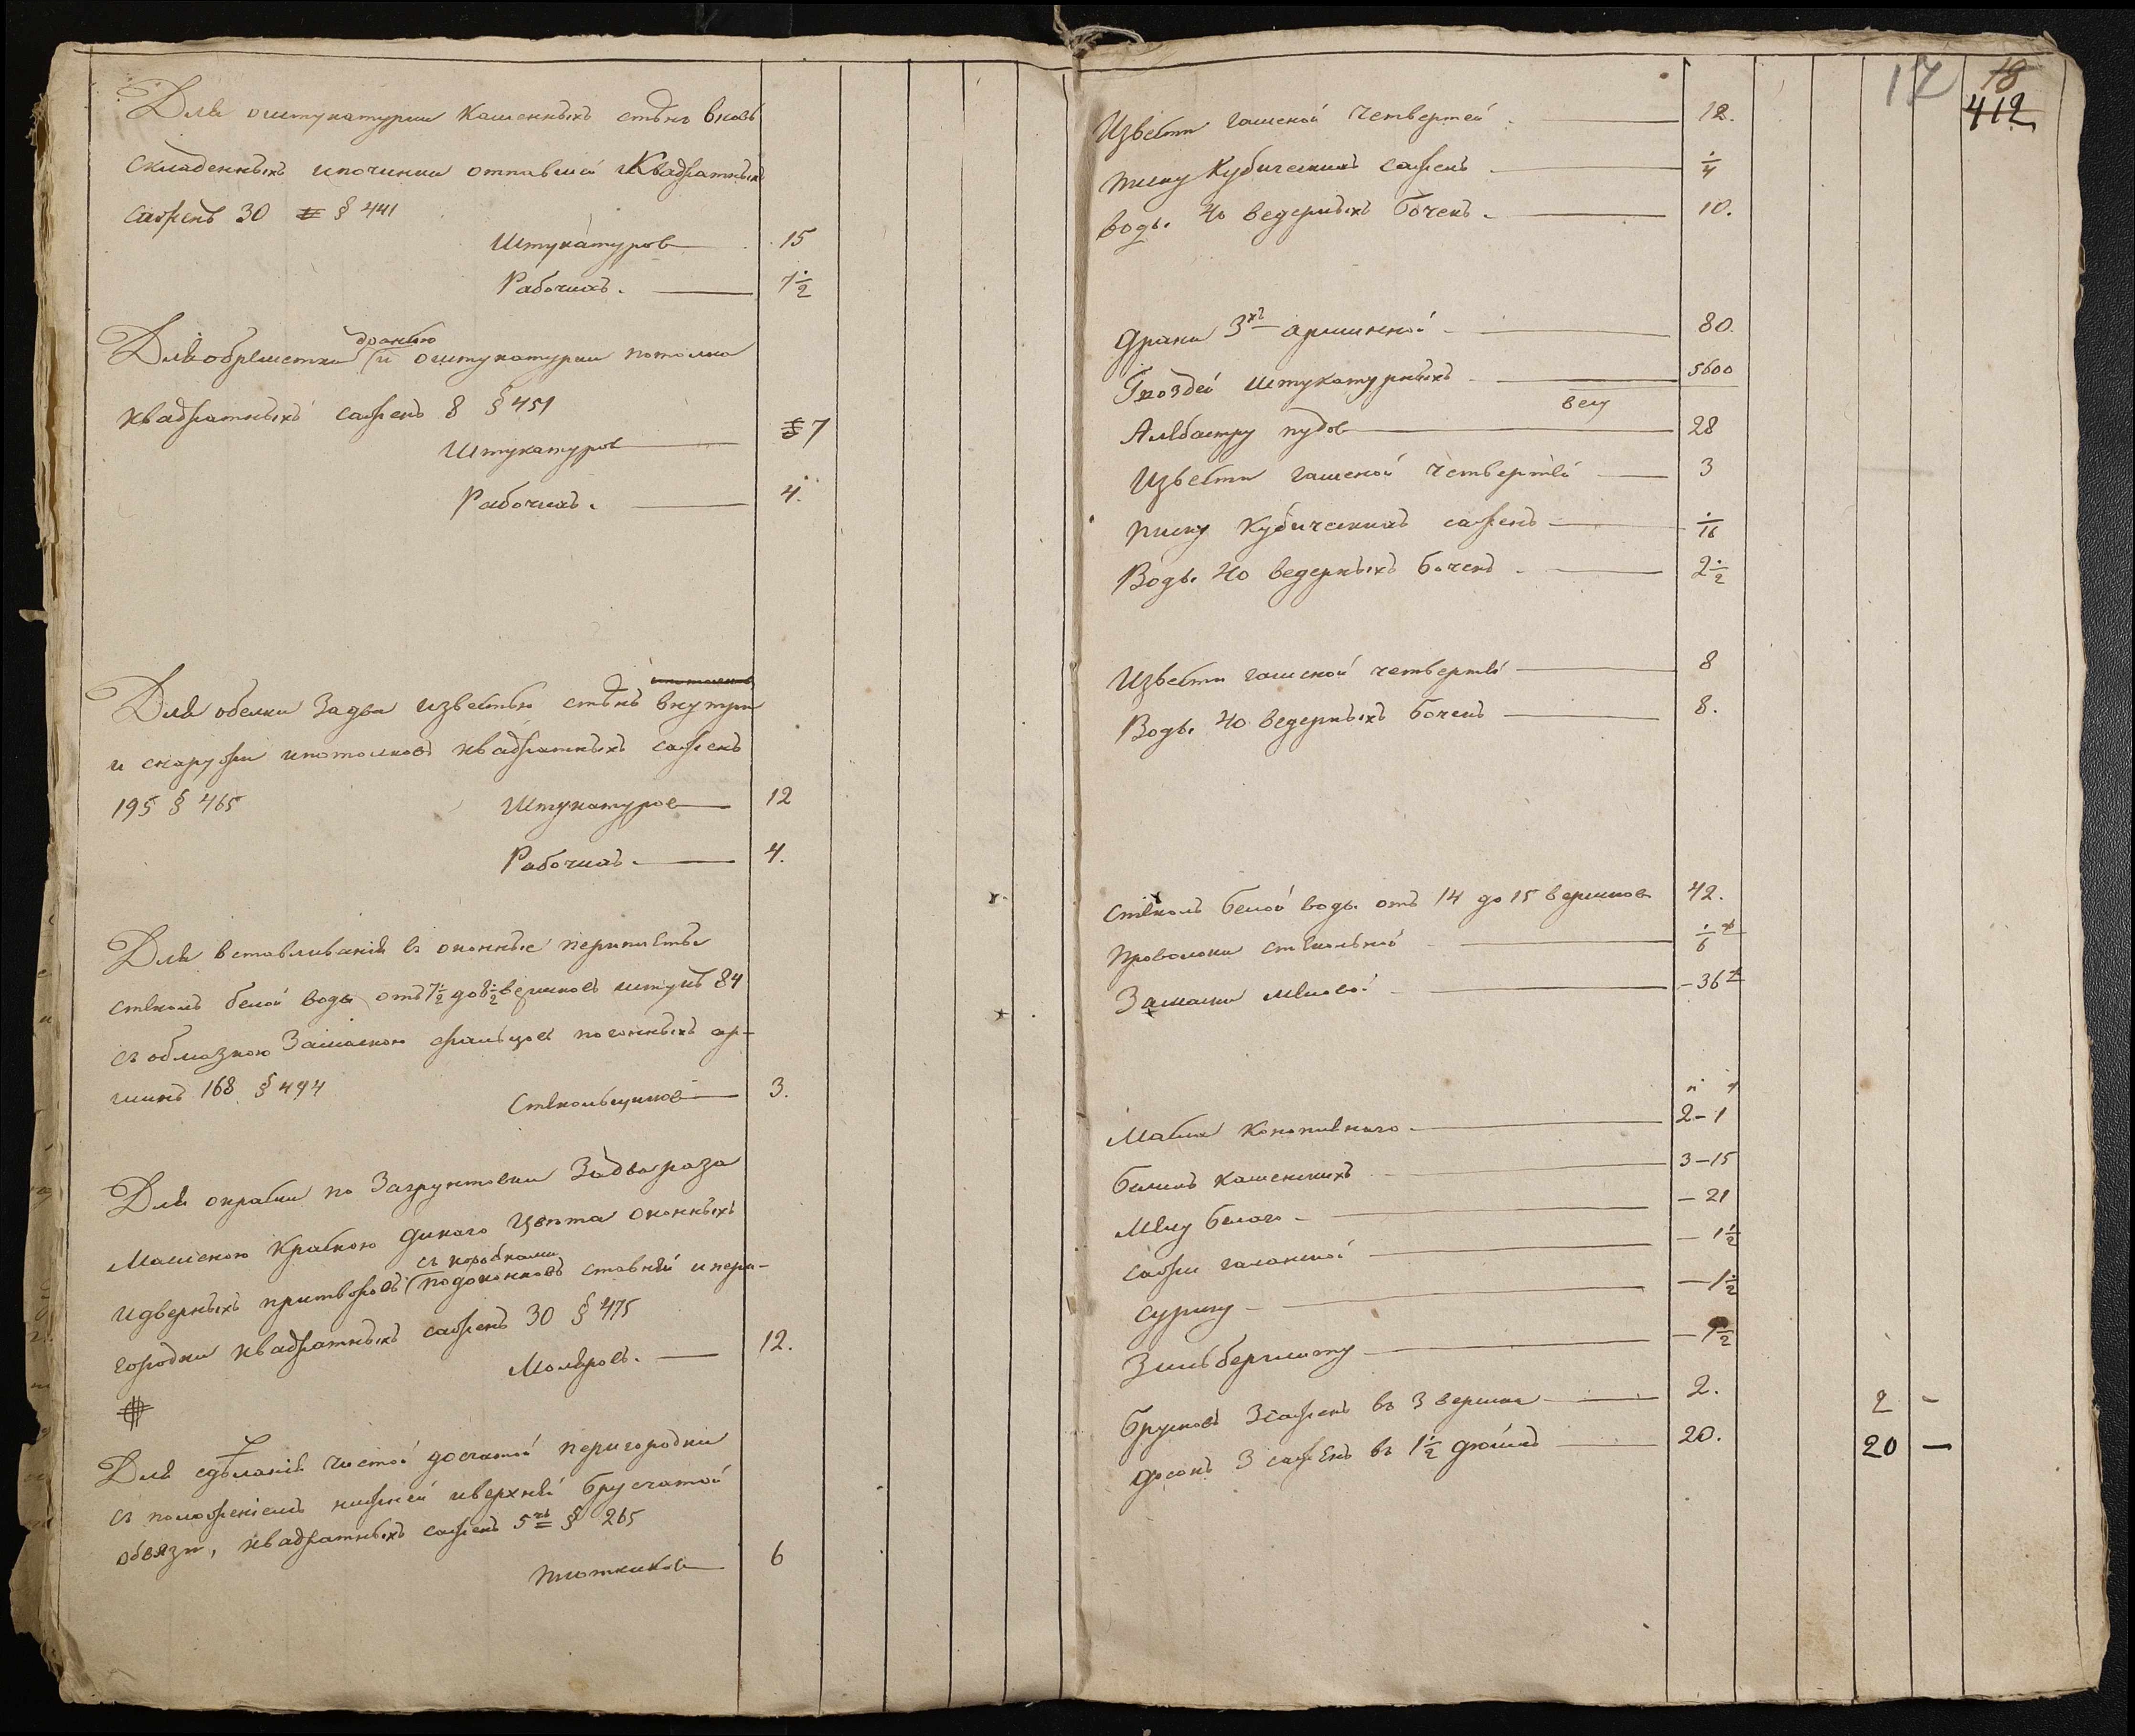 Для оштукатурки каменныхъ стѣнъ вновь
складенныхъ ипочинки отпавшей квадратныхъ
сажень 30 § 441
Штукатуровъ 15
Рабочихъ. 7 1/2
дранью
Для обрешетки и оштукатурки потолка
квадратныхъ сажень 8 § 451
Штукатуровъ 7
Рабочихъ. 4.
Для обелки за два известью стѣнъ внутри
и снаружи ипотолковъ квадратныхъ сажень
195 § 465 Штукатуровъ 12
Рабочихъ. 4.
Для вставливанія въ оконные переплеты
стеколъ белой воды отъ 7 1/2 до 8 1/2 вершковъ штукъ 84
съ обмазкою замазкою фальцовъ погонныхъ ар-
шинъ 168 § 494
Стекольщиковъ 3.
Для окраски по загрунтовки за два раза
масленою краскою дикаго цвѣта оконныхъ
съ коробками
идверныхъ притворовъ подоконковъ ставней ипере-
городки квадратныхъ сажень 30 § 475
Маляровъ. 12.
Для сдѣланія чистой досчатой перегородки
съ положеніемъ нижней иверхней брусчатой
обвязи, квадратныхъ сажень 5ть § 265
Плотниковъ 6
17 18
412
Извести гашеной четвертей 12.
песку кубическихъ сажень 1/4
воды 40 ведерныхъ бочекъ. 10.
Драни 3хъ аршинной 80.
Гвоздей штукатурныхъ 5600
весу
Алебастру пудовъ 28
Извести гашеной четвертей 3
песку кубическихъ сажень 1/16
Воды 40 ведерныхъ бочекъ 2 1/2
Извести гашеной четвертей 8
Воды 40 ведерныхъ бочекъ 8.
Стеколъ белой воды отъ 14 до 15 вершковъ 42.
Проволоки стекольной 1/6 ф
Замазки меловой - 36 ф
п ф
Масла коноплянаго 2 - 1
Белилъ каменныхъ 3 - 15
Мелу белаго - 21
Сажи галанской - 1 1/2
Сурику - 1 1/2
Зильберглету - 1 1/2
Брусковъ 3 сажень въ 3 вершка 2. 2 -
Досокъ 3 сажень въ 1 1/2 дюйма 20. 20 -